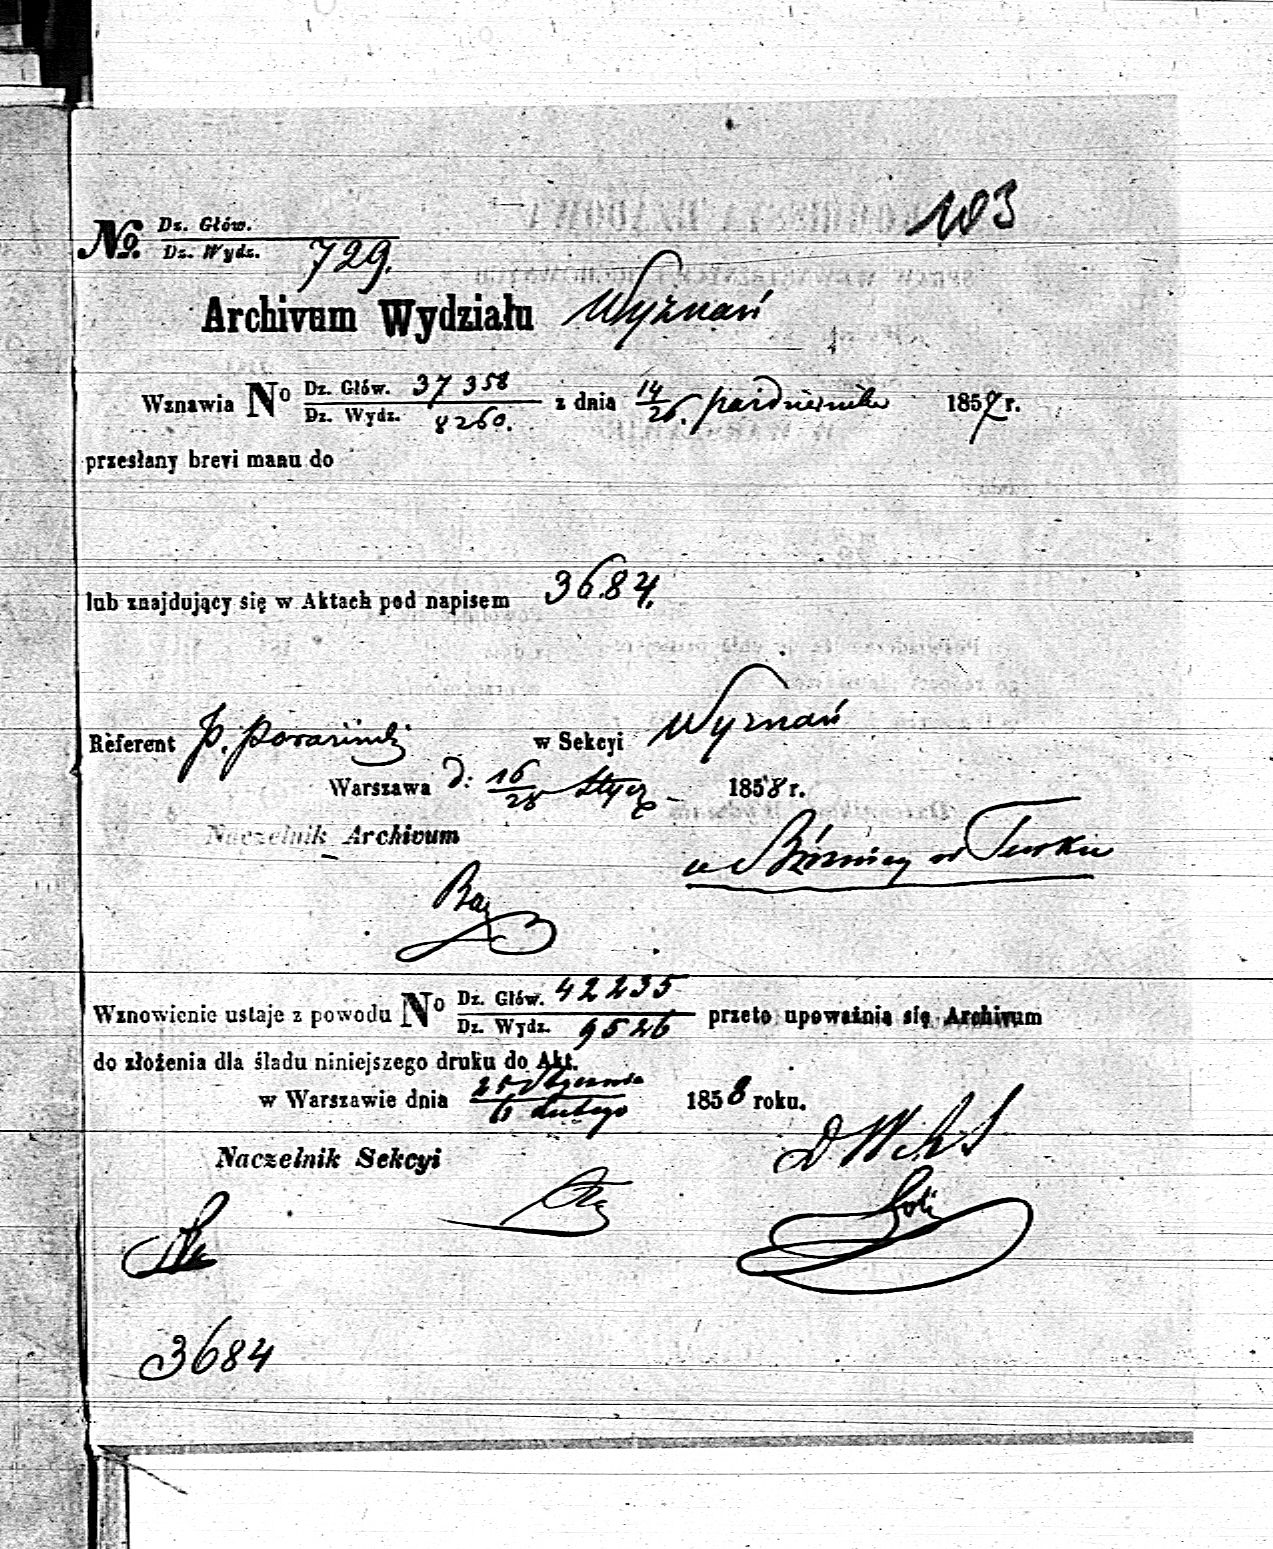 103
No. Dz. Głów.
Dz. Wydz. 729.
Archivum Wydziału Wyznań
Wznawia No Dz. Głów. 37358
Dz. Wydz. 8260. z dnia 14/26. październik 1857 r.
przesłany brevi manu do
lub znajdujący się w Aktach pod napisem 3684.
Referent P. w Sekcyi Wyznań
Warszawa d. 16/28 Stycz 1858 r.
Naczelnik Archivum
o Bóżnicy w Turku
Wznowienie ustaje z powodu No Dz. Głów. 42235
Dz. Wydz. 9526 przeto upoważnia się Archivum
do złożenia dla śladu niniejszego druku do Akt.
w Warszawie dnia 25 Stycznia / 6 Lutego 1858 roku.
Naczelnik Sekcyi
3684